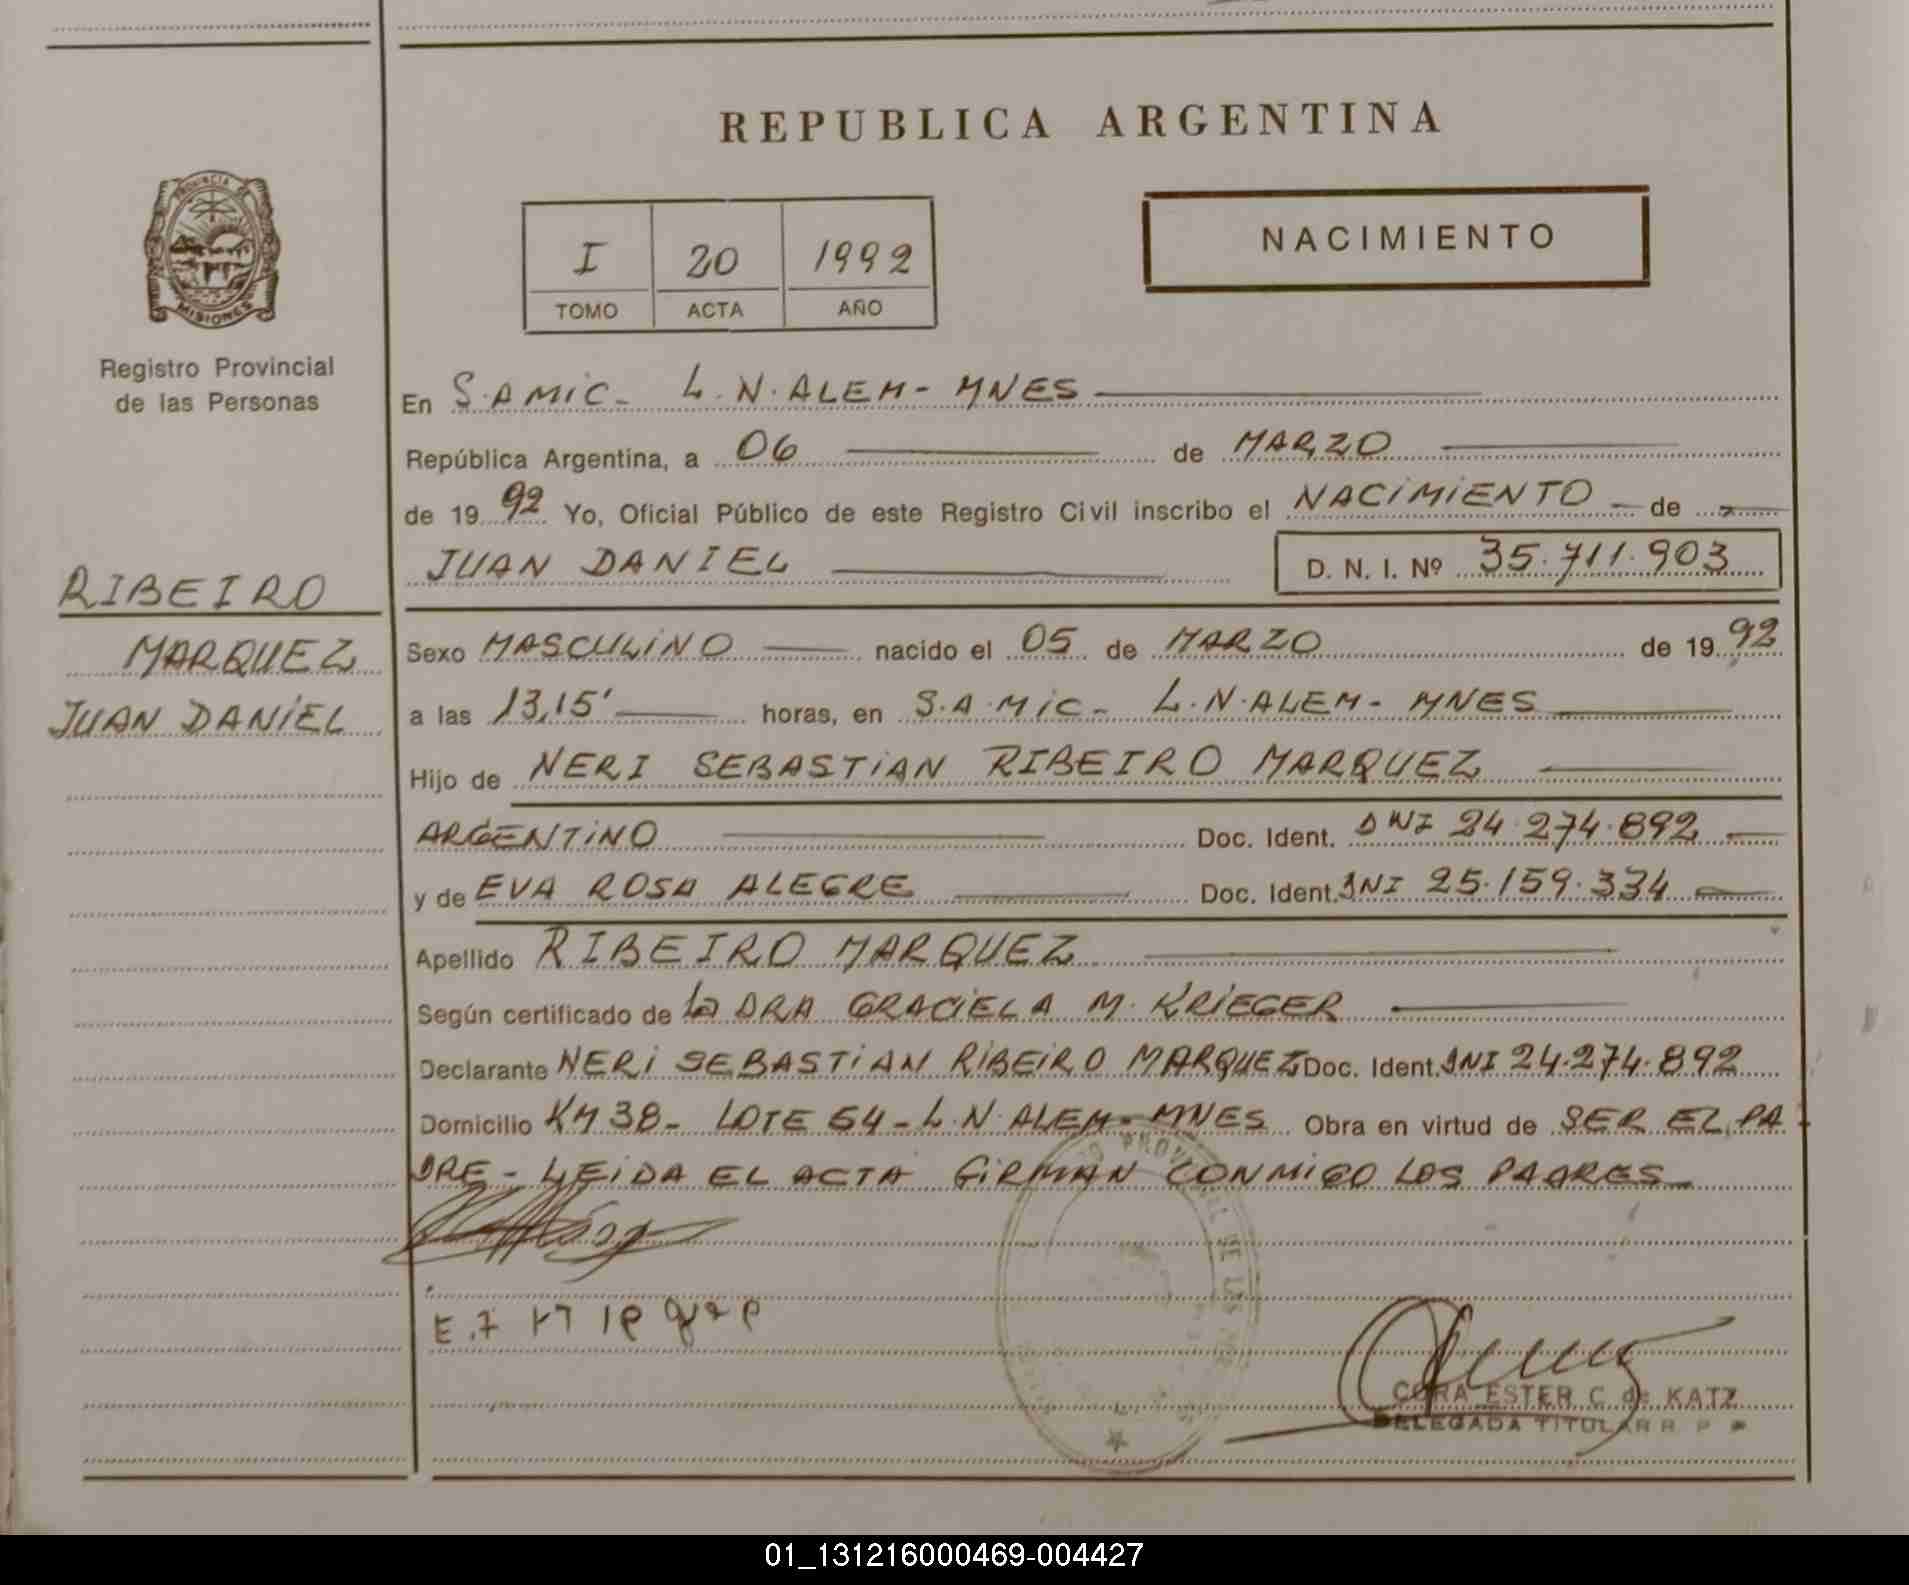 REPUBLICA ARGENTINA
PROVINCIA DE
MISIONES
Registro Provincial
de las Personas
I 20 1992
TOMO ACTA AÑO
NACIMIENTO
En S.A MIC- L.N.ALEM- MNES
República Argentina, a 06 de MARZO
de 1992 Yo, Oficial Público de este Registro Civil inscribo el NACIMIENTO de
JUAN DANIEL D. N. I. Nº 35.711.903
RIBEIRO
MARQUEZ
JUAN DANIEL
Sexo MASCULINO nacido el 05 de MARZO de 1992
a las 13,15' horas, en S.A.MIC- L.N.ALEM- MNES
Hijo de NERI SEBASTIAN RIBEIRO MARQUEZ
ARGENTINO Doc. Ident. DNI 24.274.892
y de EVA ROSA ALEGRE Doc. Ident. DNI 25.159.334
Apellido RIBEIRO MARQUEZ
Según certificado de La DRA GRACIELA M. KRIEGER
Declarante NERI SEBASTIAN RIBEIRO MARQUEZ Doc. Ident. DNI 24.274.892
Domicilio KM 38- LOTE 64-L.N ALEM-MNES Obra en virtud de SER EL PA
DRE- LEIDA EL ACTA FIRMAN CONMIGO LOS PADRES
CORA ESTER C. de KATZ
DELEGADA TITULAR R. P. P.
01_131216000469-004427